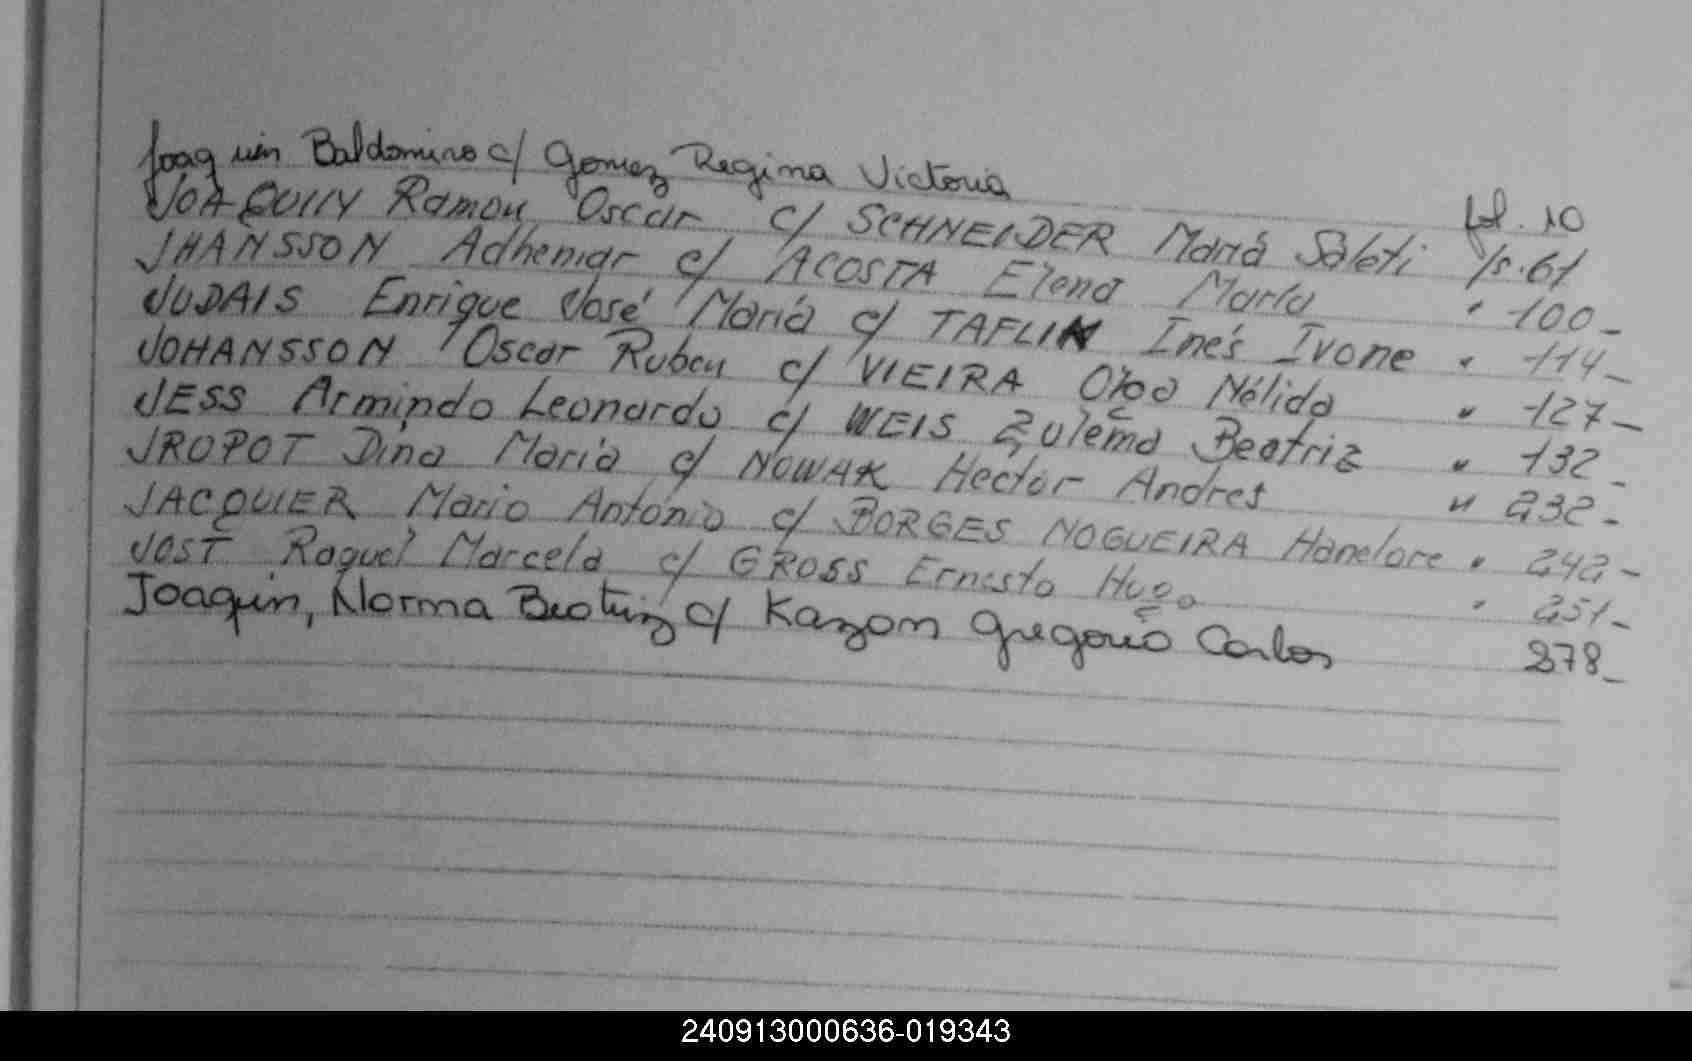 Joaquin Baldomero c/ Gomez Regina Victoria fol. 10
JOAQUIN Ramon Oscar c/ SCHNEIDER María Saleti fs. 61
JHANSSON Adhemar c/ ACOSTA Elena María " 100_
JUDAIS Enrique José María c/ TAFLIN Inés Ivone " 114_
JOHANSSON Oscar Ruben c/ VIEIRA Olga Nélida " 127_
JESS Armindo Leonardo c/ WEIS Zulema Beatriz " 132_
JROPOT Dina María c/ NOWAK Hector Andres " 232_
JACQUIER Mario Antonio c/ BORGES NOGUEIRA Hanelore " 242_
JOST Raquel Marcela c/ GROSS Ernesto Hugo " 251_
Joaquin, Norma Beatriz c/ Kazom Gregorio Carlos 278_
240913000636-019343